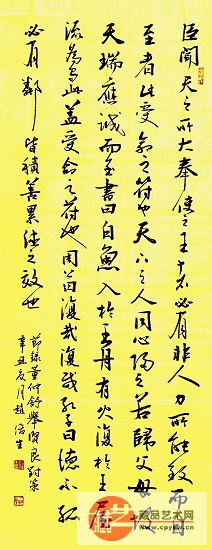 臣聞天之所大奉使之王者必有非人力所能致而自
至者此受命之符也天下之人同心歸之若歸父母故
天瑞應誠而至書曰白魚入於王舟有火復於王屋
流為烏此蓋受命之符也周公曰復哉復哉孔子曰德不孤
必有鄰 皆積善累德之效也
節錄董仲舒舉賢良對策
辛丑夏月趙生